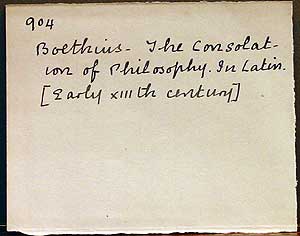 904
Boethius - The Consolat-
ion of Philosophy. In Latin.
[Early xiiith century]